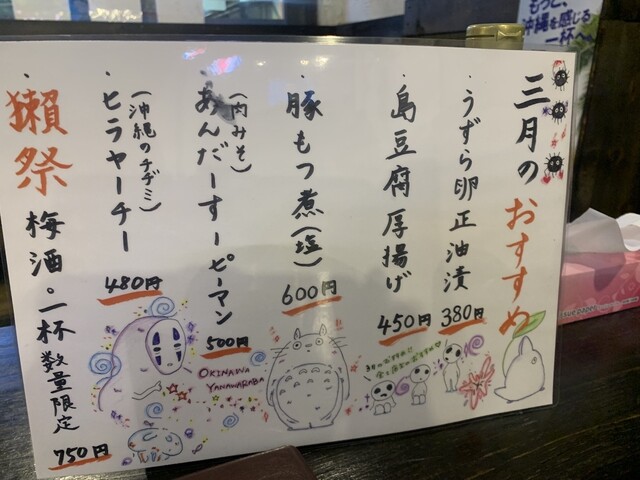 もっと、
沖縄を感じる
一杯へ
三月のおすすめ
・うずら卵正油漬
380円
・島豆腐厚揚げ
450円
・豚もつ煮(塩)
600円
・あんだーすーピーマン
(肉みそ)
500円
・ヒラヤーチー
(沖縄のチヂミ)
480円
・獺祭梅酒。一杯数量限定
750円
OKINAWA
YANAWARABA